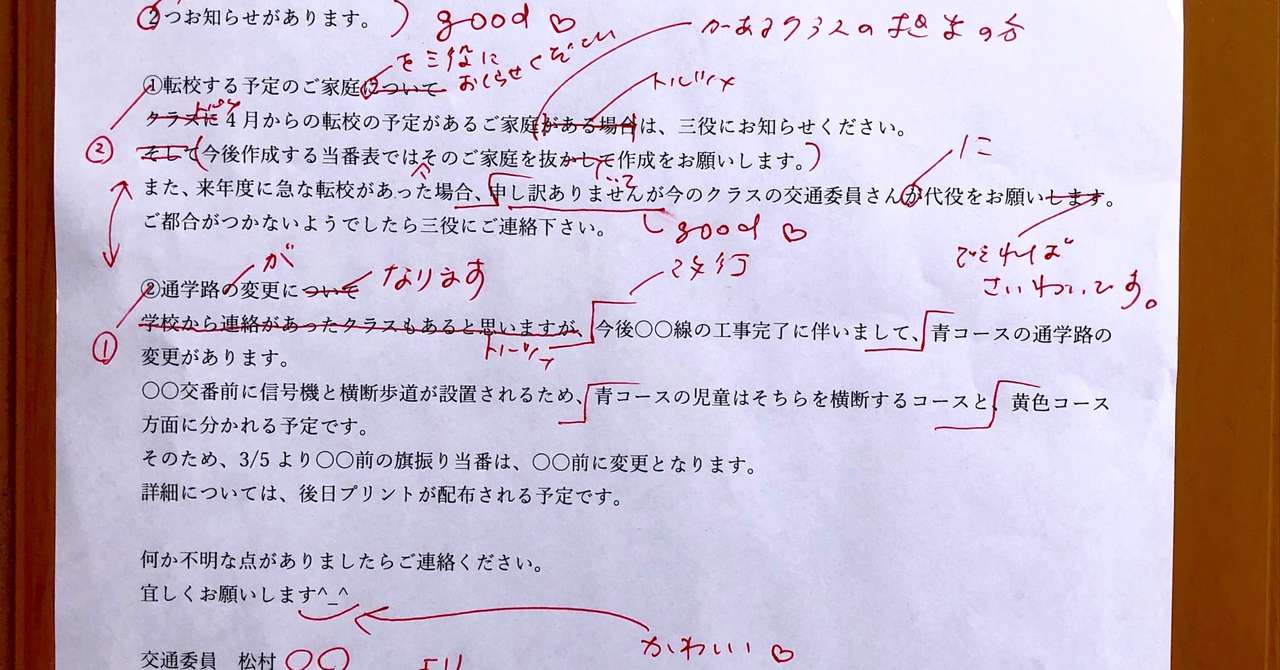 ②つお知らせがあります。 good ♡
を三役に
おしらせください
①転校する予定のご家庭について
トルツメ
トルツメ
クラスに4月からの転校の予定があるご家庭がある場合は、三役にお知らせください。
② そして今後作成する当番表ではそのご家庭を抜かして作成をお願いします。
に
また、来年度に急な転校があった場合、申し訳ありませんが今のクラスの交通委員さんが代役をお願いします。
ご都合がつかないようでしたら三役にご連絡下さい。 good ♡
できれば
さいわいです。
が なります 改行
②通学路の変更について
① 学校から連絡があったクラスもあると思いますが、今後〇〇線の工事完了に伴いまして、青コースの通学路の
トルツメ
変更があります。
〇〇交番前に信号機と横断歩道が設置されるため、青コースの児童はそちらを横断するコースと、黄色コース
方面に分かれる予定です。
そのため、3/5より〇〇前の旗振り当番は、〇〇前に変更となります。
詳細については、後日プリントが配布される予定です。
何か不明な点がありましたらご連絡ください。
宜しくお願いします^_^
かわいい♡
交通委員 松村 〇〇 より